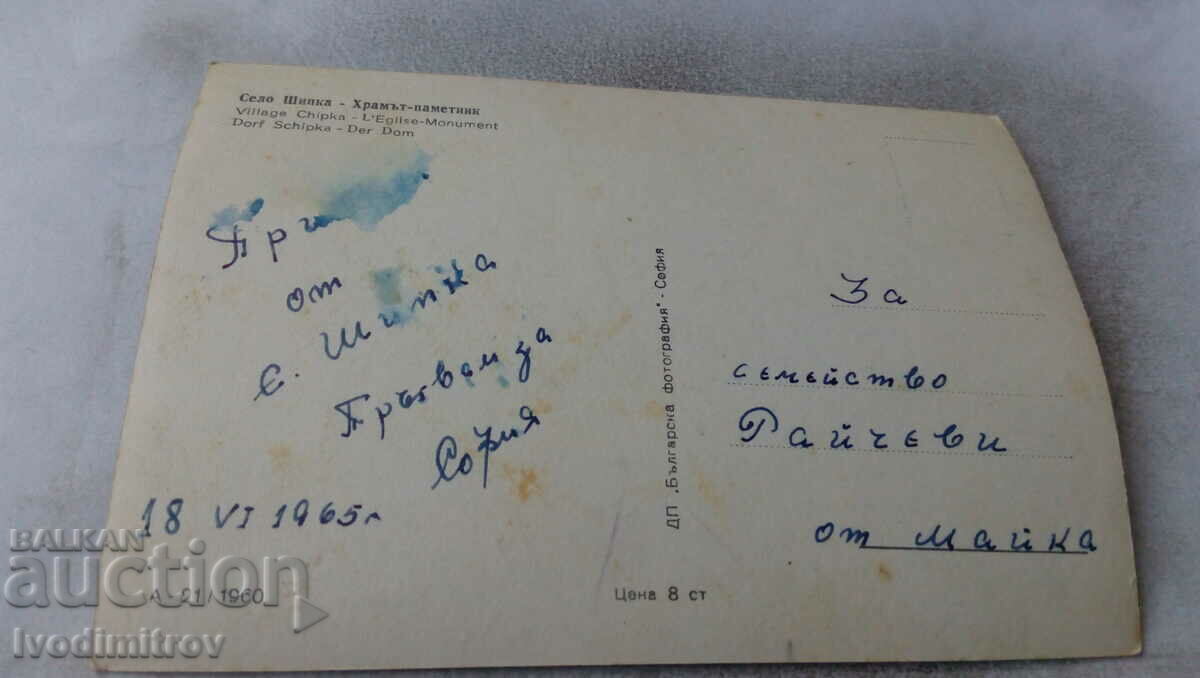 Село Шипка - Храмът-паметник
Village Chipka - L'Eglise-Monument
Dorf Schipka - Der Dom
от
с. Шипка
Тръгвам за
София
18 VI 1965 г
А - 21 / 1960
ДП „Българска фотография" - София
Цена 8 ст
За
семейство
Райчеви
от Майка
BALKAN
auction
Ivodimitrov